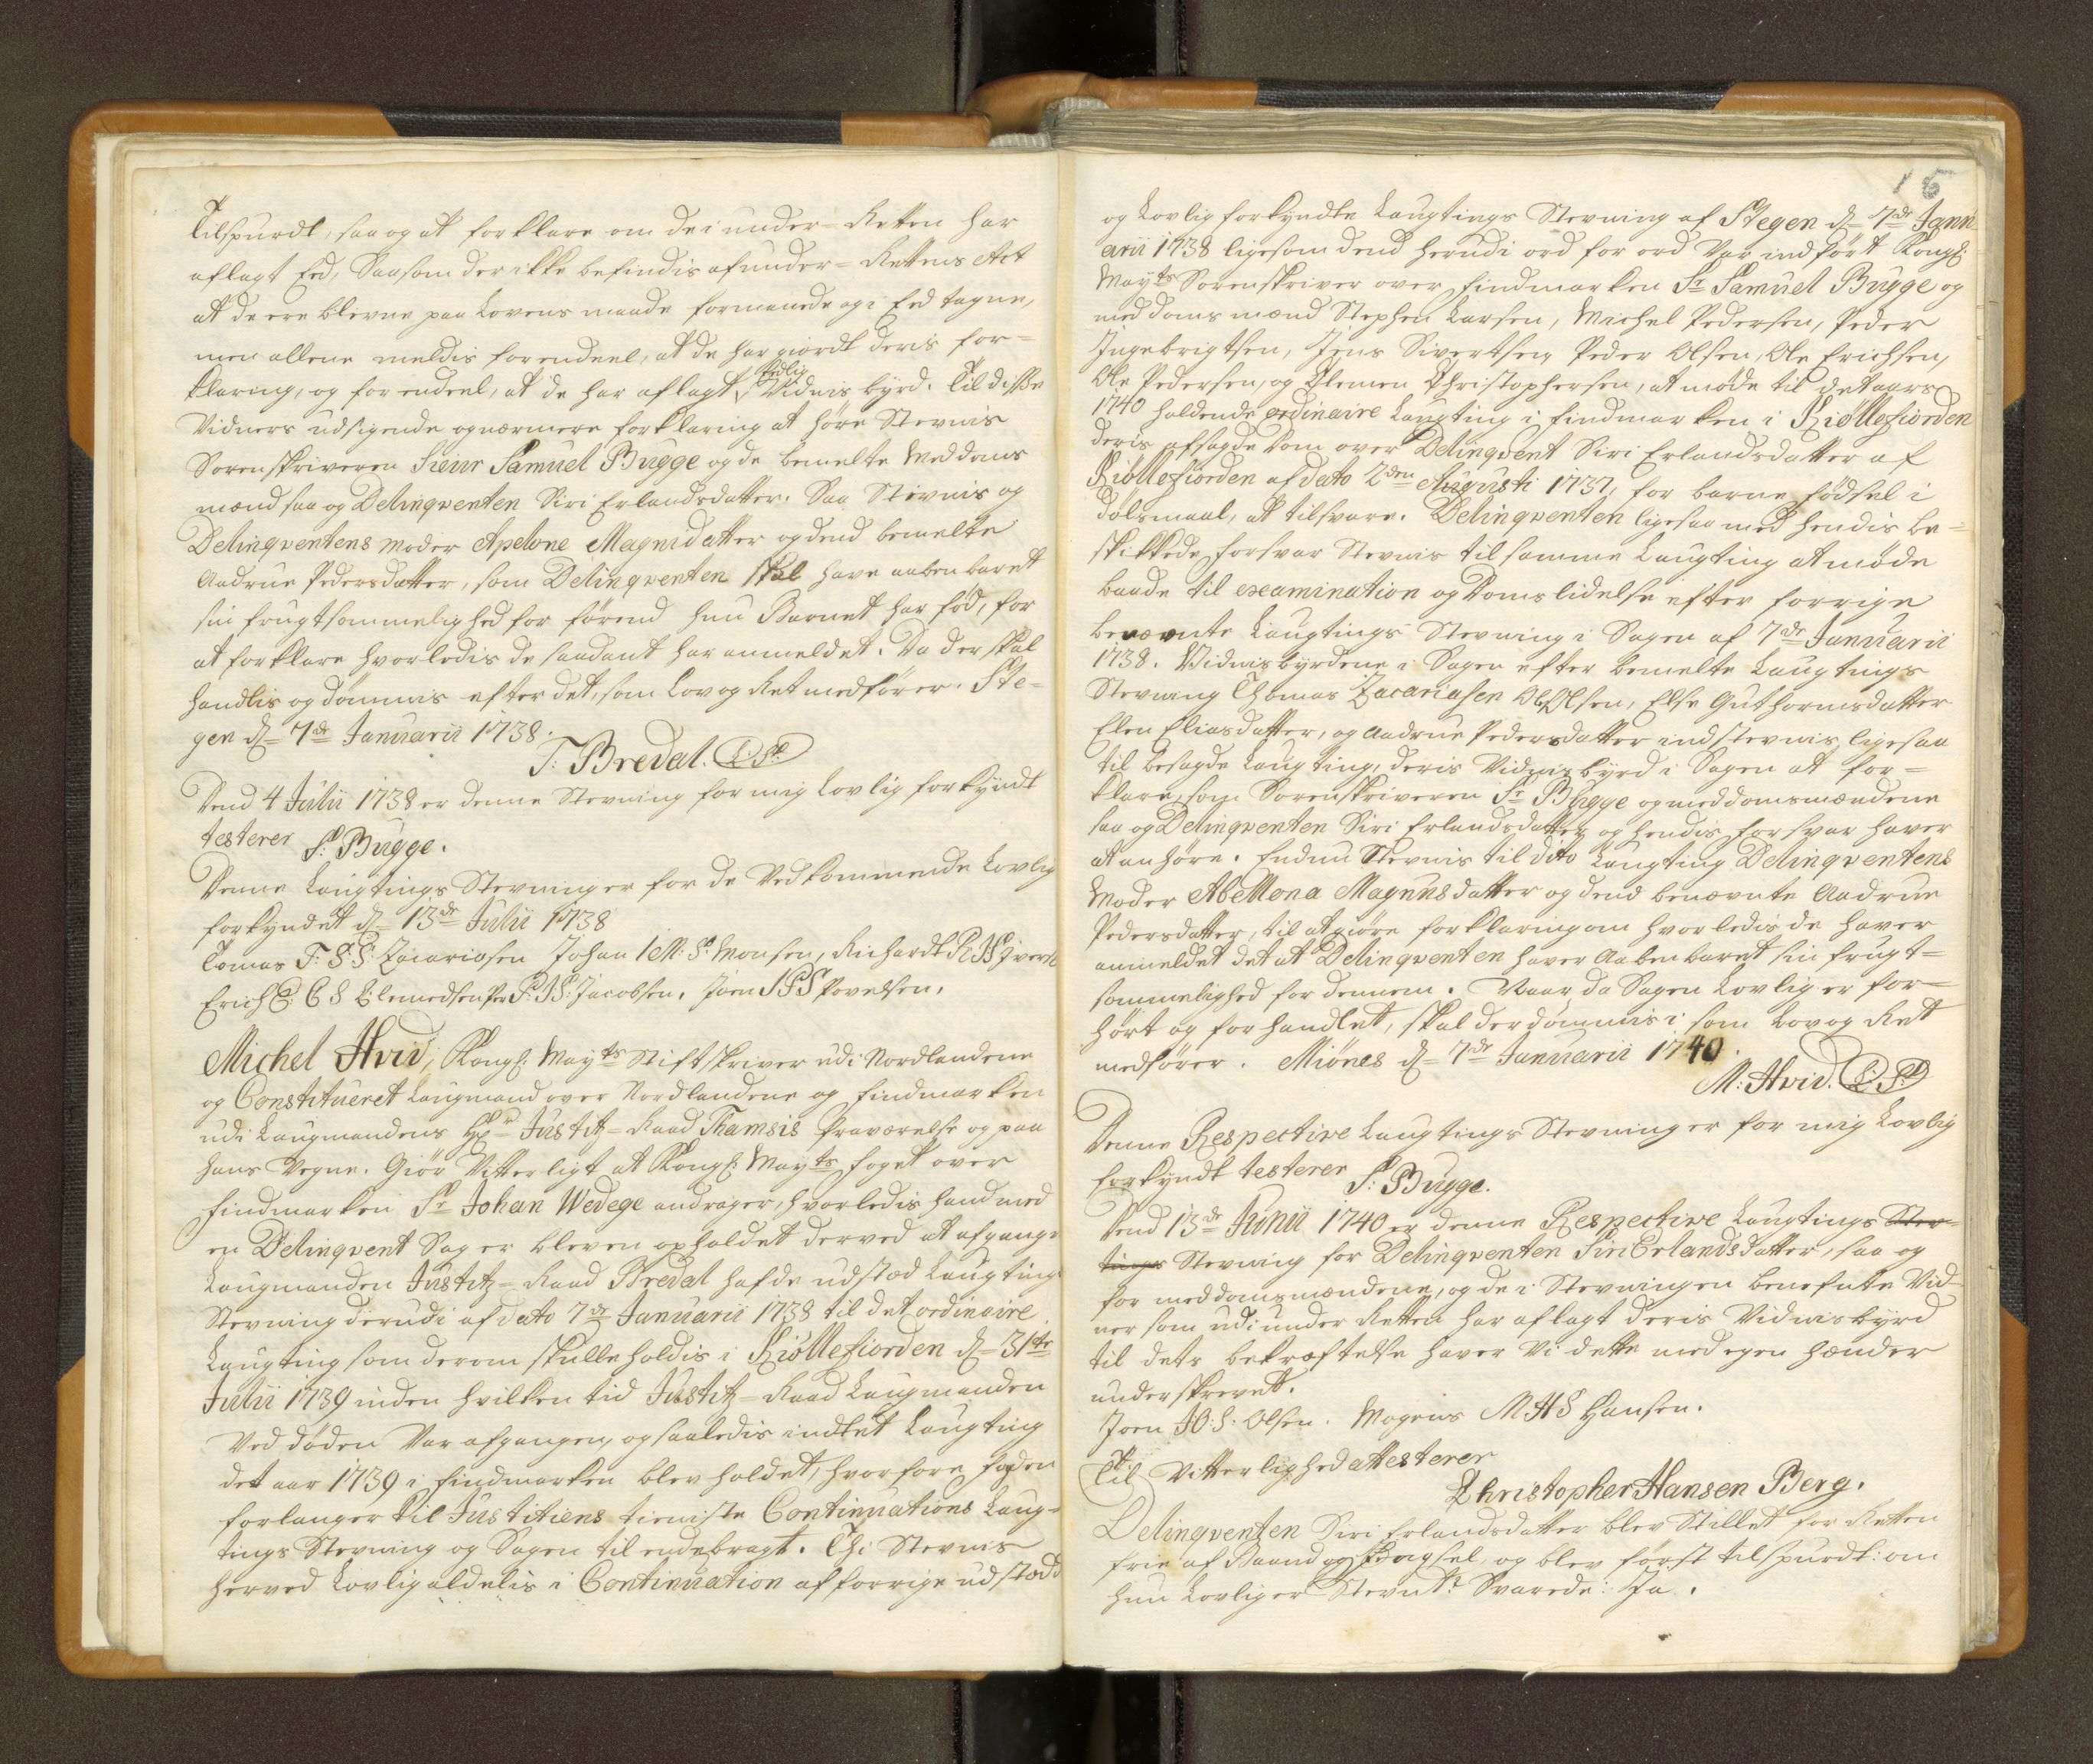 Tilspurdt, saa og at forklare om de i under-Retten har
aflagt Eed, Saasom der ikke befindis af under-Rettens Act
at de ere blevne paa Lovens maade formanede og i Eed tagne,
men allene meldis for endeel, at de har giordt deris for-
klaring, og for endeel, at de har aflagt Eedlig Vidnisbyrd. Til disse
Vidners udsigende og nærmere forklaring at høre Stevnis
Sorenskriveren Sieur Samuel Bugge og de bemelte Meddoms
mænd saa og Delinqventen Siri Erlandsdatter. Saa Stevnis og
Delinqventens Moder Apelone Magnidatter og dend bemelte
Aadrue Pedersdatter, som Delinqventen skal have aabenbaret
sin frugtsommelighed for førend hun Barnet har fød, for
at forklare hvorledis de saadant har anmeldet. Da der skal
handlis og dømmis efter det, som Lov og Ret medfører. Ste-
gen d. 7de Januarii 1738.
T: Bredal. L.S.
Dend 4 Julii 1738 er denne Stevning for mig Lovlig forkyndt
testerer S: Bugge.
Denne Laugtings Stevning er for de Vedkommende Lovlig
forkyndet d. 13de Julii 1738
Tomas T: S S: Zacariasen Johan I M: S: Monsen, Richardt R I S Iversen
Erich E: C S Clemedsen Per P: I S: Jacobsen. Joen I P S Povelsen.
Michel Hvid, Kongl: Mayts Stiftskriver udi Nordlandene
og Constitueret Laugmand over Nordlandene og Findmarken
udi Laugmandens Hr Justitz-Raad Thamsis fraværelse og paa
hans Vegne. Giør Vitterligt at Kongl: Mayts foget over
Findmarken Sr Johan Wedege andrager, hvorledis hand med
en Delinqvent Sag er bleven opholdet derved at afgangne
Laugmanden Justitz-Raad Bredal hafde udstæd Laugtings
Stevning derudi af dato 7de Januarii 1738 til det ordinaire
Laugting som derom skulle holdis i Kiøllefiorden d. 31te
Julii 1739 inden hvilken tid Justitz-Raad Laugmanden
Ved døden Var afgangen, og saaledis intet Laugting
det aar 1739 i Findmarken blev holdet, hvorfore fogden
forlanger til Justitiens tieniste Continuations Laug-
tings Stevning og Sagen til ende bragt. Thi Stevnis
herved Lovlig aldelis i Continuation af forrige udstædde
15
og Lovlig forkyndte Laugtings Stevning af Stegen d. 7de Janu
arii 1738 ligesom dend herudi ord for ord Var indført Kongl:
Mayts Sorenskriver over Findmarken Sr Samuel Bugge og
meddoms mænd Stephen Larsen, Michel Pedersen, Peder
Ingebrigtsen, Jens Sivertsen Peder Olsen, Ole Erichsen,
Ole Pedersen, og Clemen Christophersen, at møde til det aars
1740 holdende ordinaire Laugting i Findmarken i Kiøllefiorden
deris afsagde Dom over Delinqvent Siri Erlandsdatter af
Kiøllefiorden af dato 2den Augusti 1737, for barne fødsel i
dølsmaal, at tilsvare. Delinqventen ligesaa med hendis be-
skikkede forsvar Stevnis til samme Laugting at møde
baade til examination og Doms lidelse efter forrige
benævnte Laugtings Stevning i Sagen af 7de Januarii
1738. Widnisbyrdene i Sagen efter bemelte Laugtings
Stevning Thomas Zacariasen Ole Olsen, Else Guthormsdatter
Elen Eliasdatter, og Aadrue Pedersdatter indstevnis ligesaa
til besagde Laugting, deris Vidnisbyrd i Sagen at for-
klare, som Sorenskriveren Sr Bugge og meddomsmændene
saa og Delinqventen Siri Erlandsdatter og hendis forsvar haver
at anhøre. Endnu Stevnis til dito Laugting Delinqventens
Moder Abellona Magnusdatter og dend benævnte Aadrue
Pedersdatter, til at giøre forklaring om hvorledis de haver
anmeldet det at Delinqventen haver Aabenbaret sin frugt-
sommelighed for dennem. Naar da Sagen Lovlig er for-
hørt og forhandlet, skal der dømmis i som Lov og Ret
medfører. Miønes d. 7de Januarii 1740.
M: Hvid. L.S.
Denne Respective Laugtings Stevning er for mig Lovlig
forkyndt testerer S: Bugge.
Dend 13de Junii 1740 er denne Respective Laugtings Stev-
tings Stevning for Delinqventen Siri Erlandsdatter, saa og
for meddomsmændene, og de i Stevningen benefnte Vid-
ner som udi under Retten har aflagt deris Vidnisbyrd
til dets bekræftelse haver Vi dette med egen hænder
underskrevet.
Joen I O: S: Olsen. Mogens M H S Hansen.
Til Vitterlighed attesterer
Christopher Hansen Berg.
Delinqventen Siri Erlandsdatter blev Stillet for Retten
frie af Baand og Fængsel, og blev først tilspurdt: om
hun Lovlig er Stevnt? Svarede: Ja.